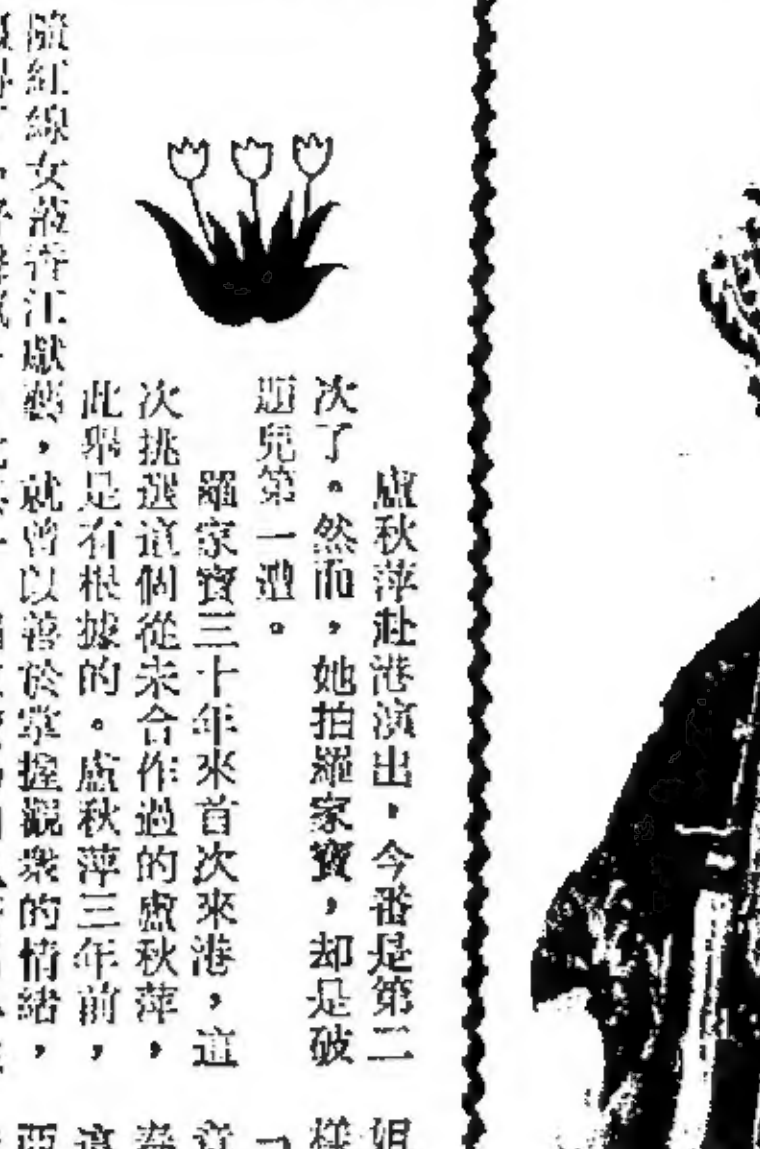 盧秋萍赴港演出，今番是第二
次了。然而，她拍羅家寶，却是破
題兒第一遭。
羅家寶三十年來首次來港，這
次挑選這個從未合作過的盧秋萍，
此舉是有根據的。盧秋萍三年前，
隨紅線女蒞香江獻藝，就曾以善於掌握觀衆的情緒，